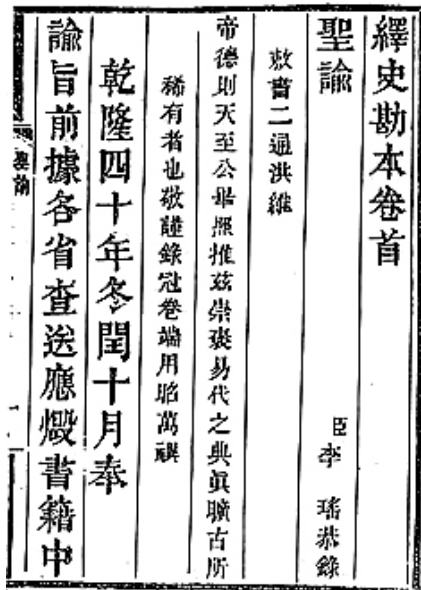 繹史勘本卷首
聖諭 臣李瑤恭錄
敕書二通洪維
帝德則天至公畢照推茲崇褒易代之典眞曠古所
稀有者也敬謹錄冠卷端用昭萬禩
乾隆四十年冬閏十月奉
諭旨前據各省查送應燬書籍中
聖諭